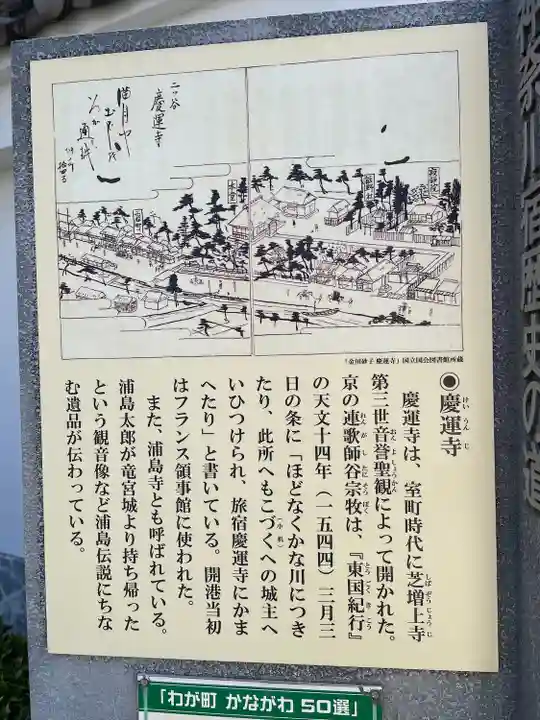 神奈川宿歴史の道
二ッ谷
慶運寺
満月や
本堂
『金川砂子 慶運寺』国立国会図書館所蔵
◉慶運寺
けいうんじ
慶運寺は、室町時代に芝増上寺
しばぞうじょうじ
第三世音誉聖観によって開かれた。
おんよしょうかん
京の連歌師谷宗牧は、『東国紀行』
れんがしたにそうぼく
とうごくきこう
の天文十四年(一五四四)三月三
日の条に「ほどなくかな川につき
たり、此所へもこづくへの城主へ
(小机)
いひつけられ、旅宿慶運寺にかま
へたり」と書いている。開港当初
はフランス領事館に使われた。
また、浦島寺とも呼ばれている。
浦島太郎が竜宮城より持ち帰った
という観音像など浦島伝説にちな
む遺品が伝わっている。
「わが町 かながわ 50選」